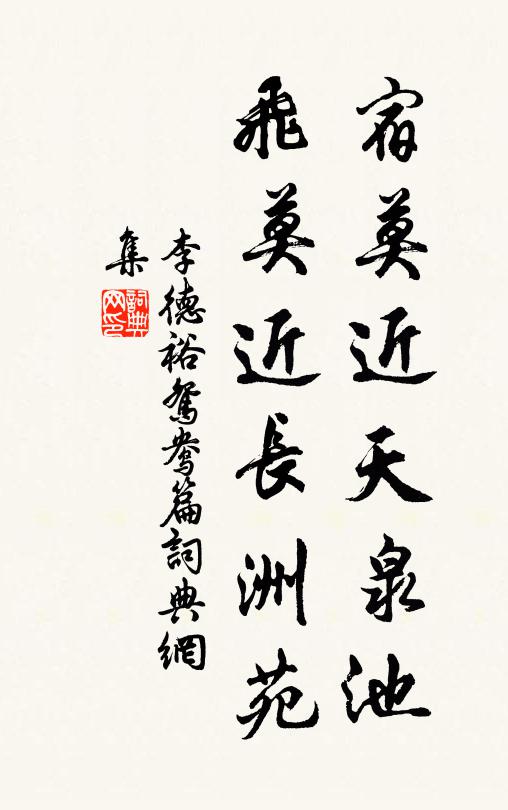 宿莫近天泉池
飛莫近長洲苑
李德裕鴛鴦篇詞典網
集
詞典
网印